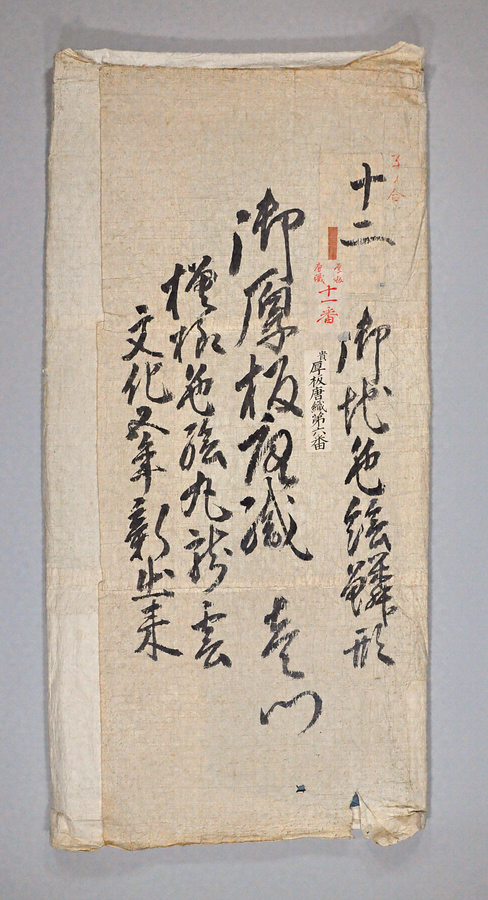 十二
御地色絵鱗形
厚板
唐織
十一番
貴厚板唐織第六番
御厚板唐織 壱
模様色絵丸龍雲
文化五年新出来